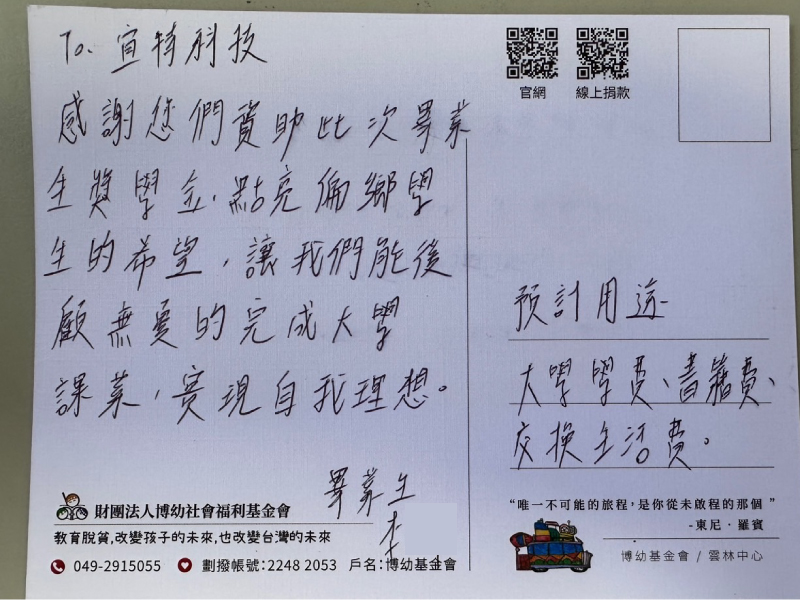 To. 宜特科技
感謝您們資助此次畢業
生獎學金,點亮偏鄉學
生的希望,讓我們能後
顧無憂的完成大學
課業,實現自我理想。
畢業生
官網
線上捐款
預計用途
大學學費、書籍費、
交換生活費。
財團法人博幼社會福利基金會
教育脫貧,改變孩子的未來,也改變台灣的未來
049-2915055 劃撥帳號:2248 2053 戶名:博幼基金會
“唯一不可能的旅程,是你從未啟程的那個”
-東尼.羅賓
博幼基金會 / 雲林中心